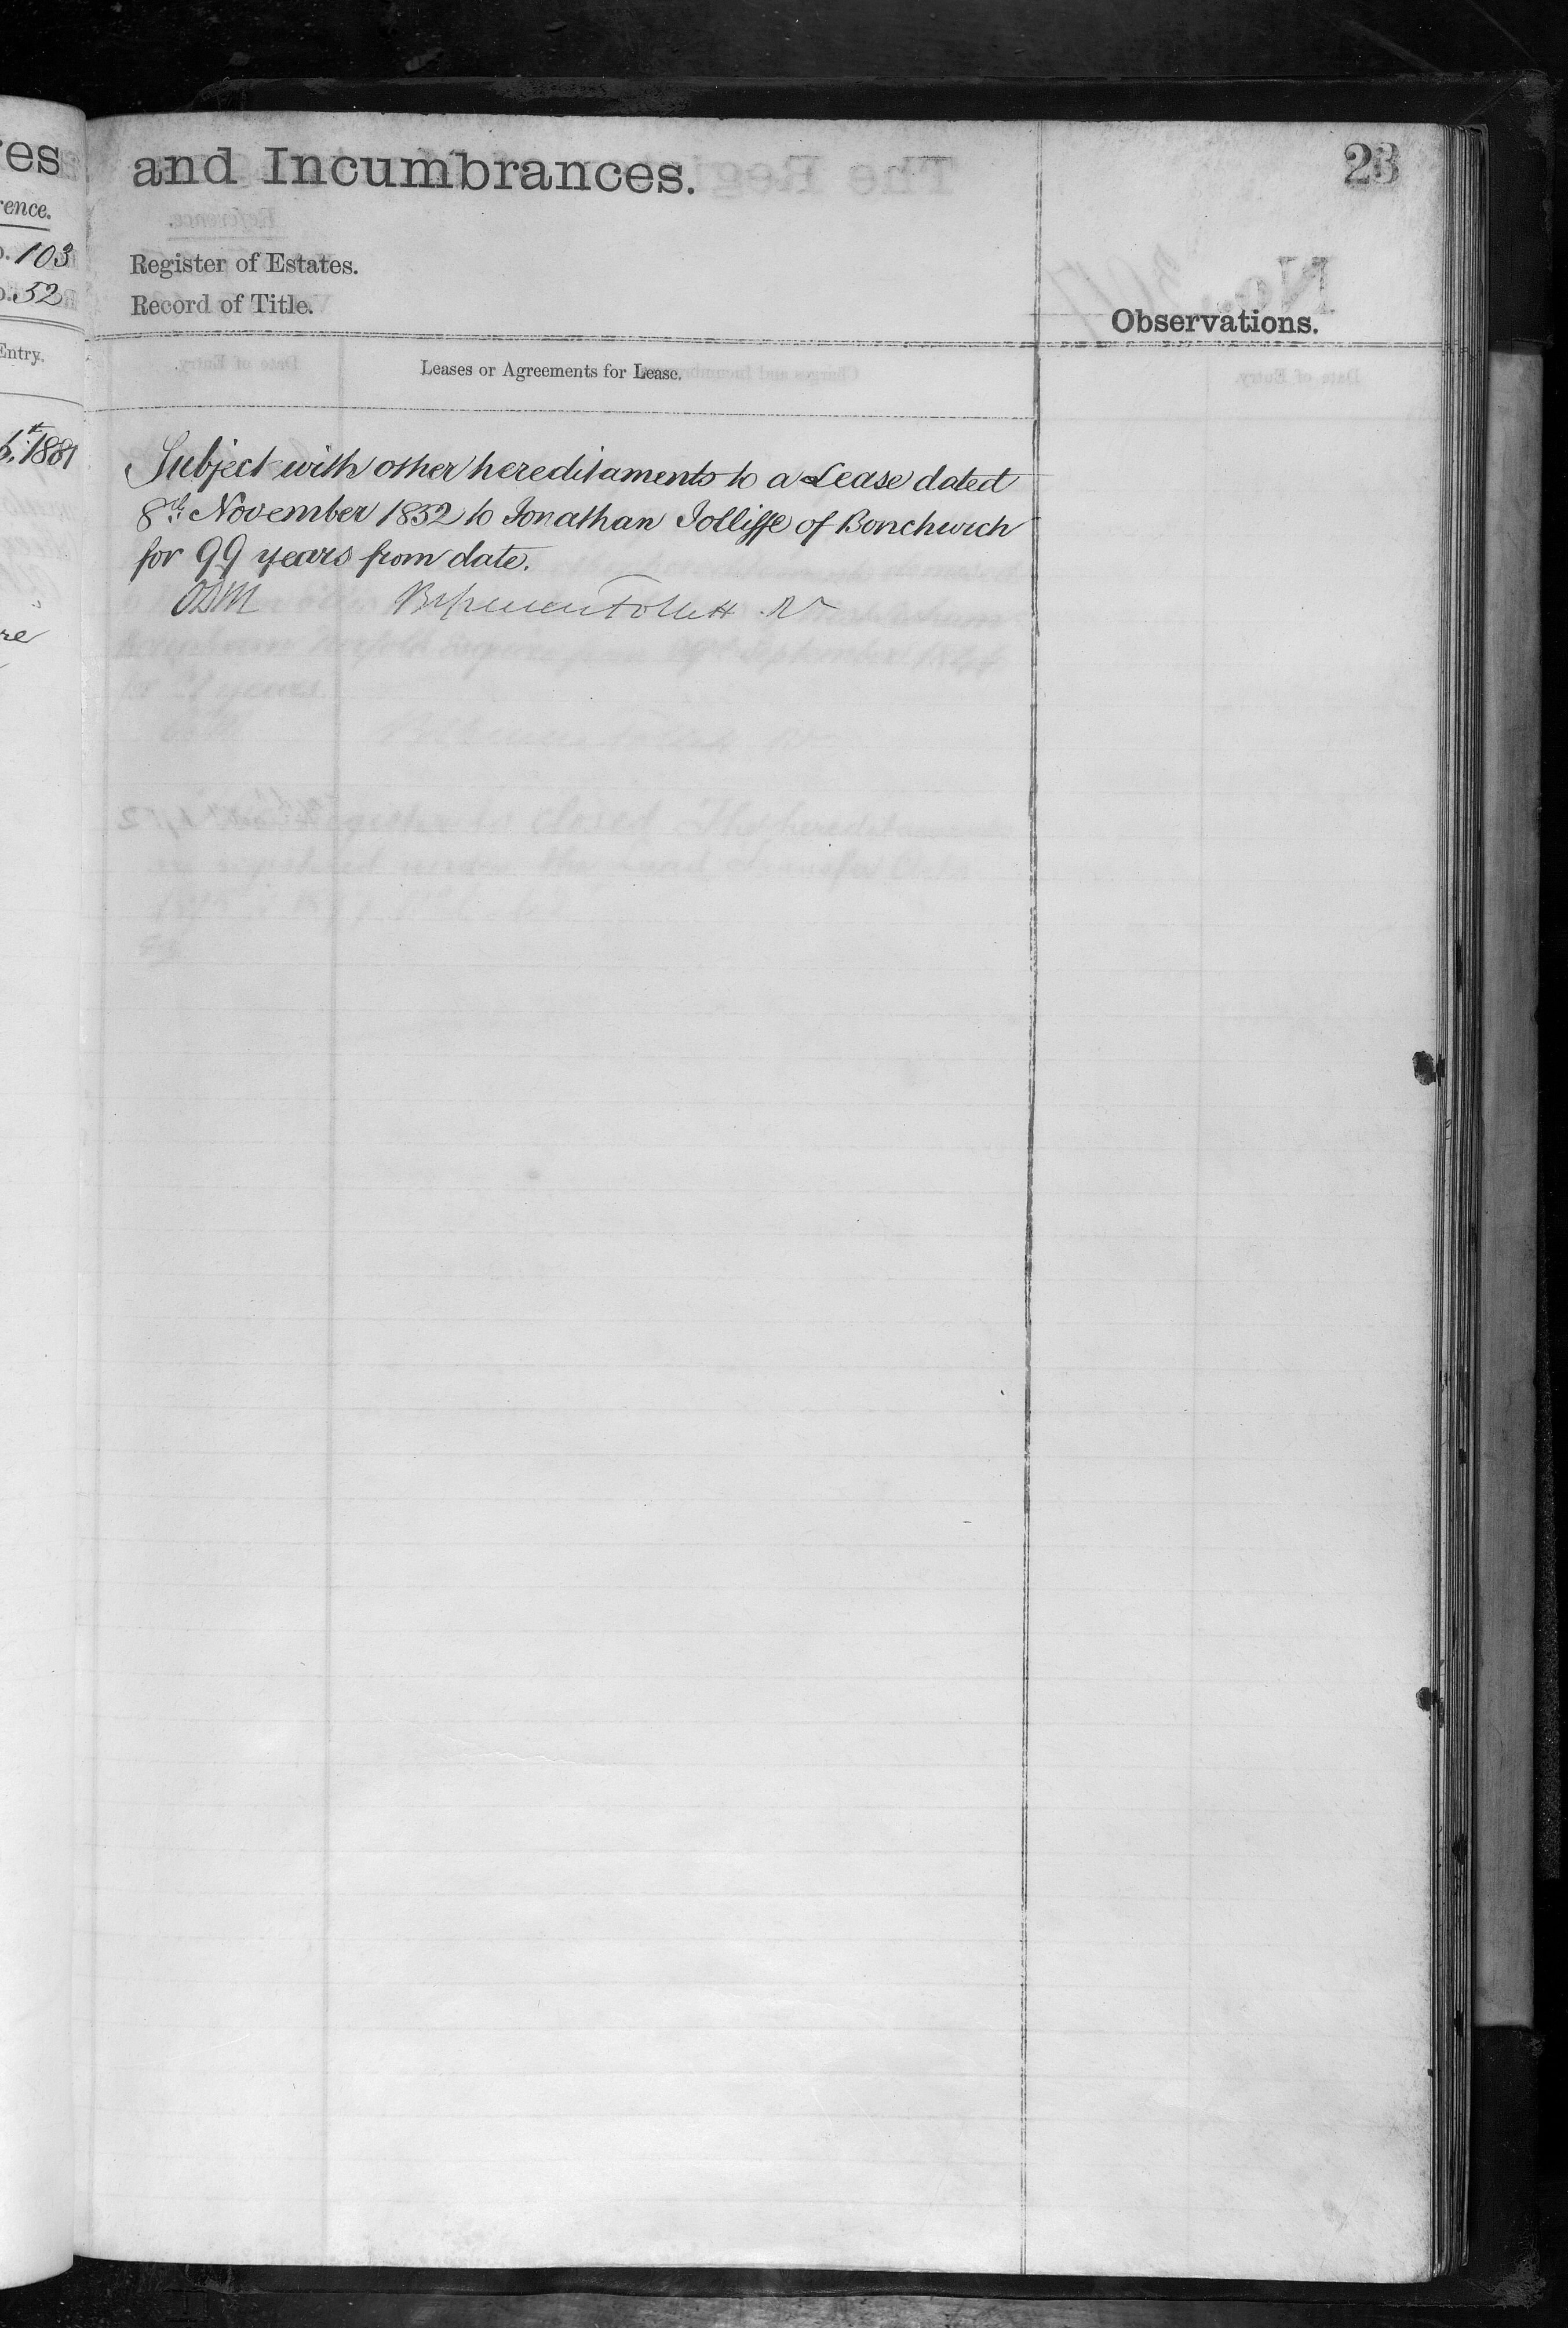 es
and Incumbrances.
23
rence.
103
Register of Estates.
52
Record of Title.
Observations.
Entry.
Leases or Agreements for Lease.
1881
Subject with other hereditaments to a Lease dated
8th November 1832 to Jonathan Jolliffe of Bonchurch
for 99 years from date.
Follett
re